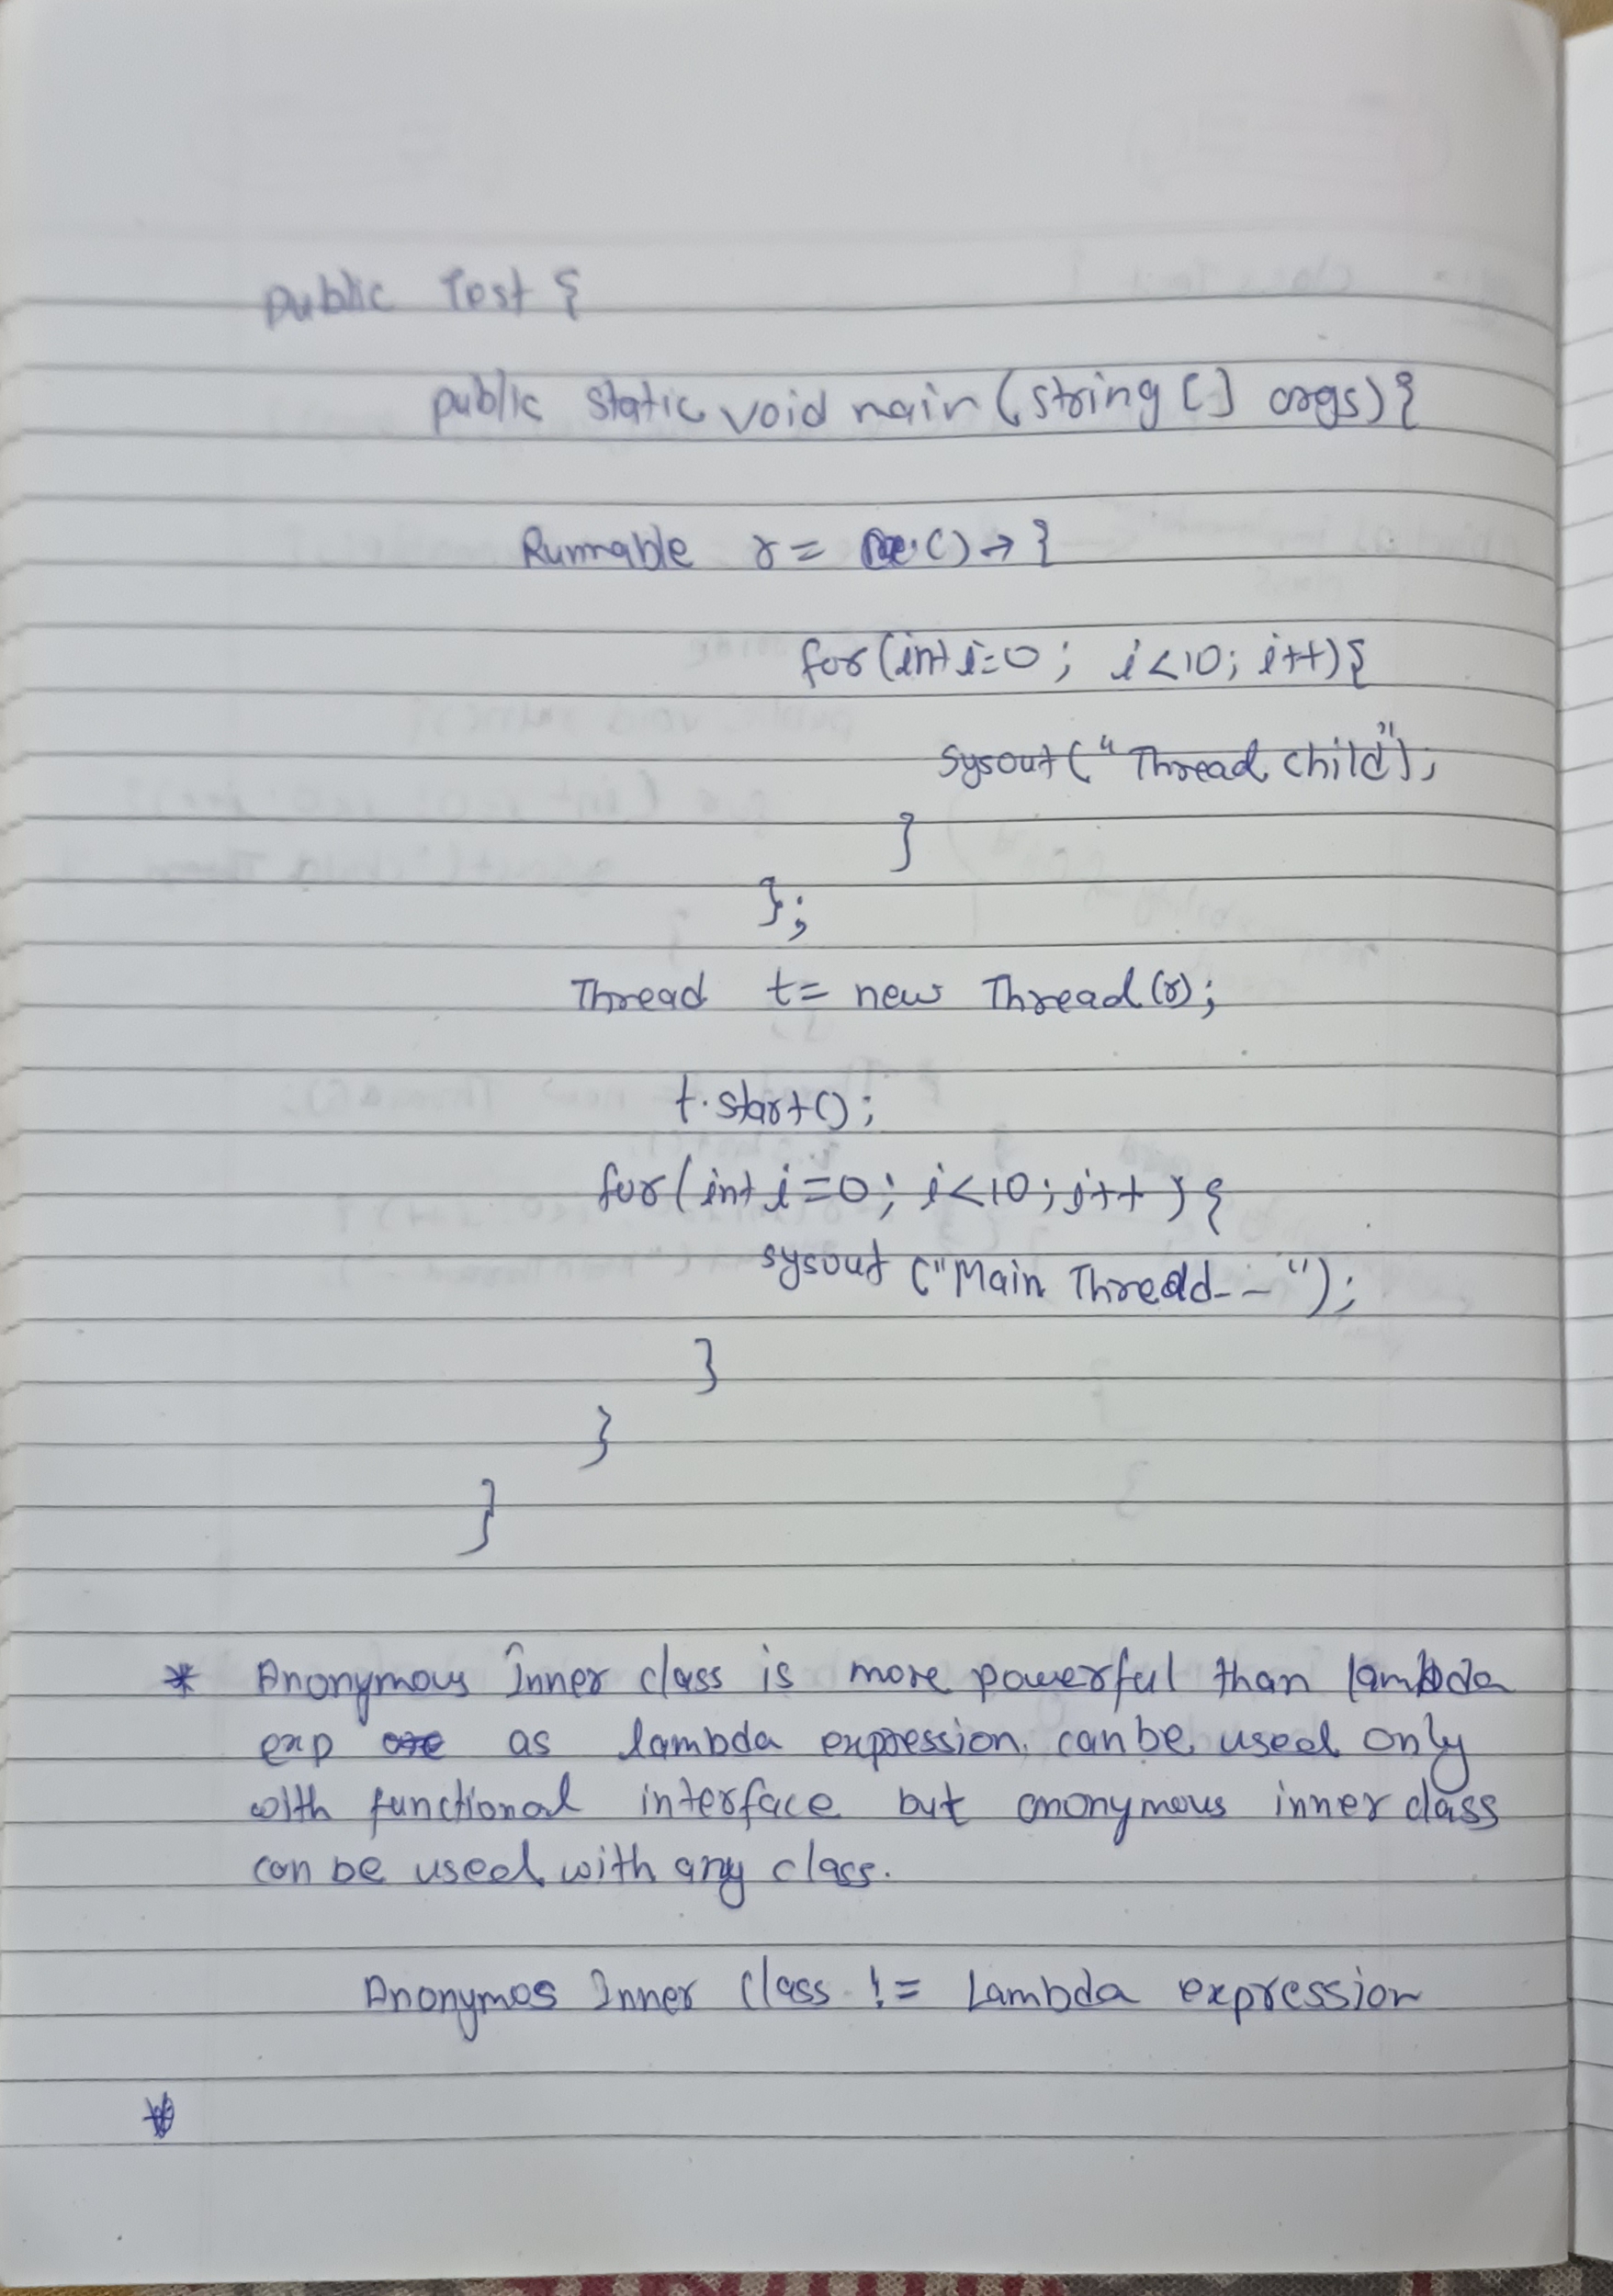 public Test {
public static void main (string [] args) {
Runnable r = () → {
for (int i=0 ; i<10; i++) {
sysout ("Thread child");
}
};
Thread t= new Thread (r);
t.start();
for (int i=0; i<10; i++) {
sysout ("Main Thread- - ");
}
}
}
* Anonymous Inner class is more powerful than lambda
exp as lambda expression can be used only
with functional interface but anonymous inner class
can be used with any class.
Anonymos Inner Class != Lambda expression